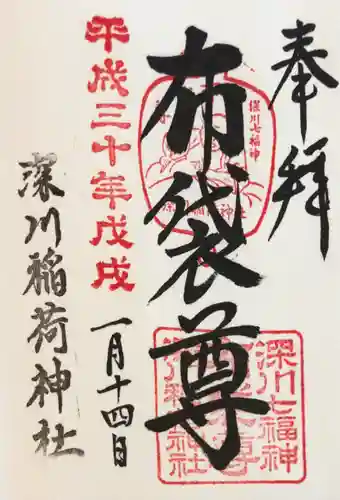 奉拝
深川七福神
布袋尊
深川稲荷神社
深川七福神
布袋尊
深川稲荷神社
平成三十年戊戌
一月十四日
深川稲荷神社